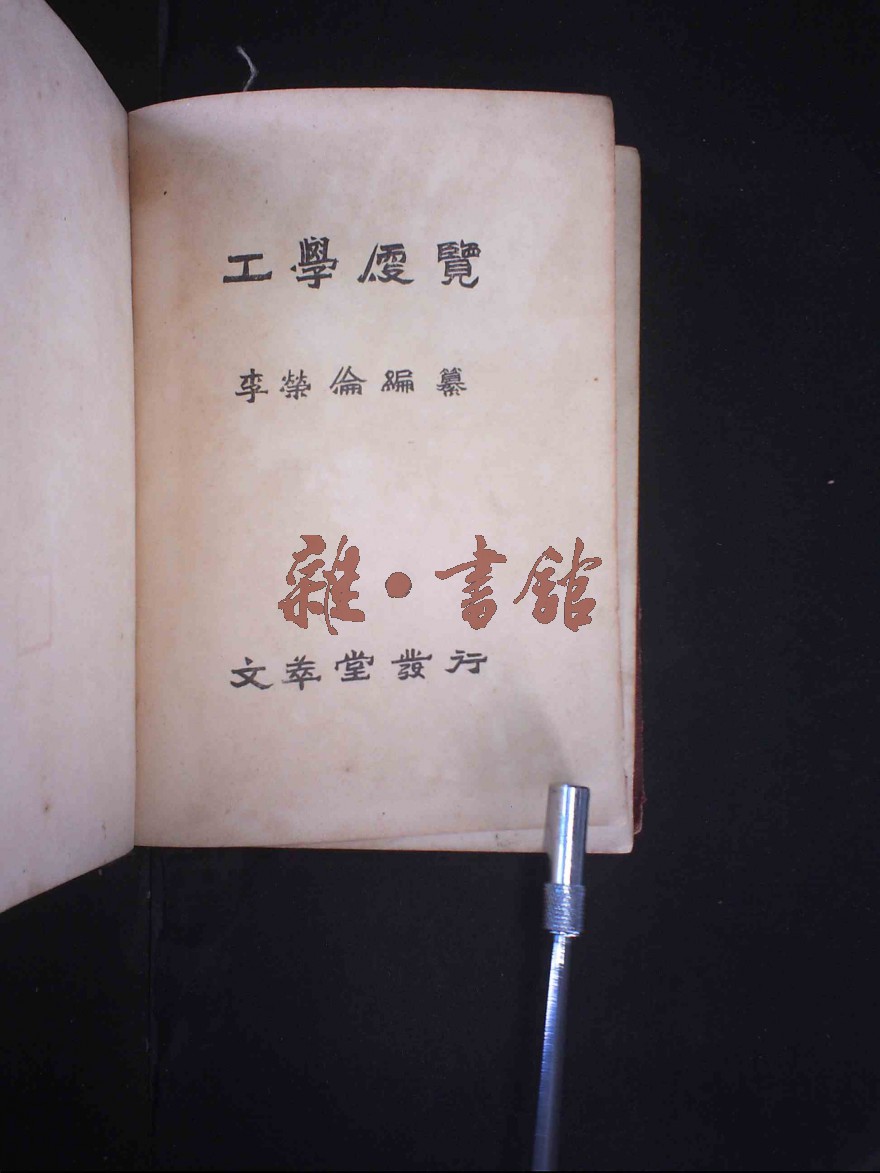 工學便覽
李榮倫編纂
雜·書館
文萃堂發行